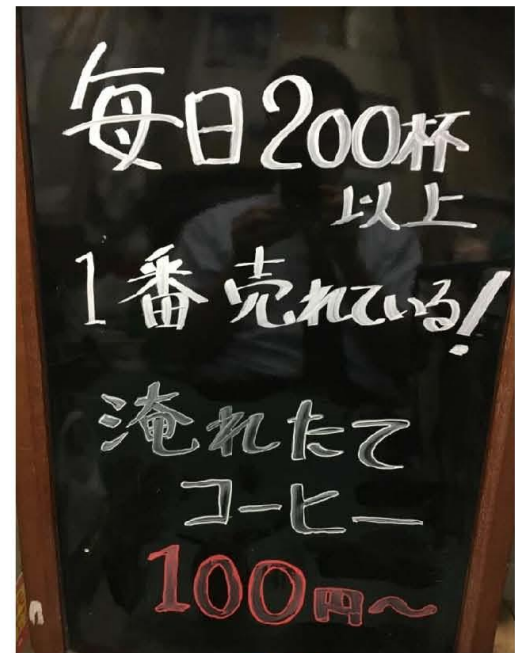 毎日200杯
以上
1番売れている!
淹れたて
コーヒー
100円～